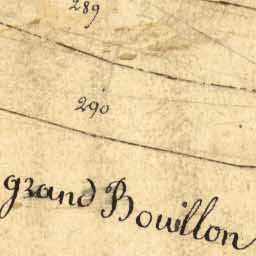 289
290
grand Bouillon